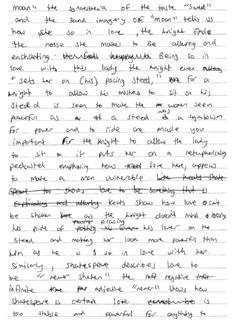 moan" the synesthesia of the taste "sweet"
and the sound imagery of "moan" tells us
how she so in love, the knight finds
the noise she makes to be alluring and
enchanting. Being so in
love with this lady the knight even
"sets her on (his) pacing steed," for a
knight to allow his to sit on his
steed is seen to make the women seen
powerful as a steed is a symbol
for power and to ride are made you
important. For the knight to allow the lady
to sit on it puts her on a metaphorically
pedestal emphasising how love has, appears
to make a man vulnerable
Keats shows how love can't
be shaken as the knight doesn't mind
his pride of placing his lover on the
steed and making her look more powerful than
him as he is so in love with her.
Similarly, Shakespeare describes love to
be "never shaken" the
infinite adjective "never" shows how
Shakespeare is certain love is
too stable and powerful for anything to